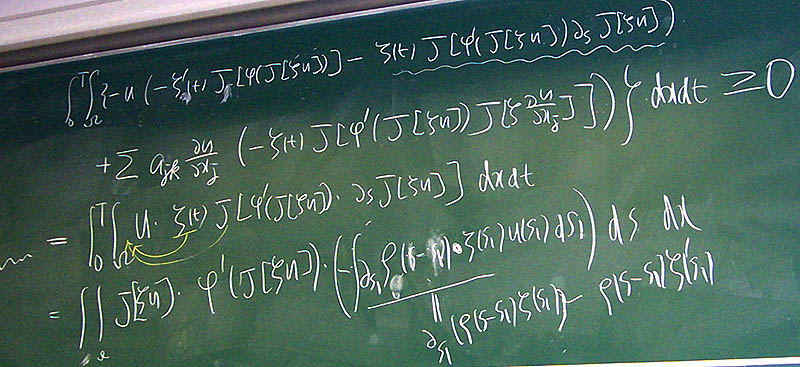 ∫₀ᵀ∫_Ω {-u (-ζ'(t) J[φ(J[ζu])] - ζ(t) J[φ'(J[ζu]) ∂s J[ζu])
+ Σ ajk ∂u/∂xj (-ζ(t) J[φ'(J[ζu]) J[ζ ∂u/∂xj]])} dxdt ≥ 0
= ∫₀ᵀ∫_Ω u · ζ(t) J[φ'(J[ζu]) · ∂s J[ζu]] dxdt
= ∫∫ J[ζu] · φ'(J[ζu]) · (-∫∂s₁ρ(s-s₁) · ζ(s₁)u(s₁)ds₁) ds dx
∂s₁(ρ(s-s₁)ζ(s₁)) - ρ(s-s₁)ζ'(s₁)